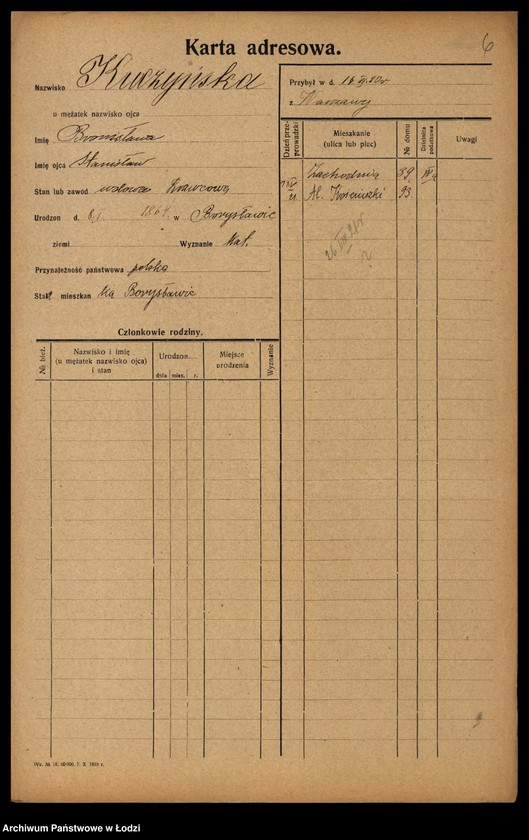 Karta adresowa.
6
Nazwisko Kuczyńska
u mężatek nazwisko ojca
Imię Bronisława
Imię ojca Stanisław
Stan lub zawód wdowa Krawcowa
Urodzon d. 8/I 1864 w Borysławic
ziemi Wyznanie kat.
Przynależność państwowa polska
Stały mieszkan ka Borysławic
Członkowie rodziny.
№ bież.
Nazwisko i imię
(u mężatek nazwisko ojca)
i stan
Urodzon
dnia mies. r.
Miejsce
urodzenia
Wyznanie
Przybył w d.
z Warszawy
Dzień prze-
prowadzki
Mieszkanie
(ulica lub plac)
№ domu
Dzielnica
podatkowa
Uwagi
Zachodnia 59
Al. Kościuszki 93
Wz. № 18. 60 000. 7. X. 1919 r.
Archiwum Państwowe w Łodzi